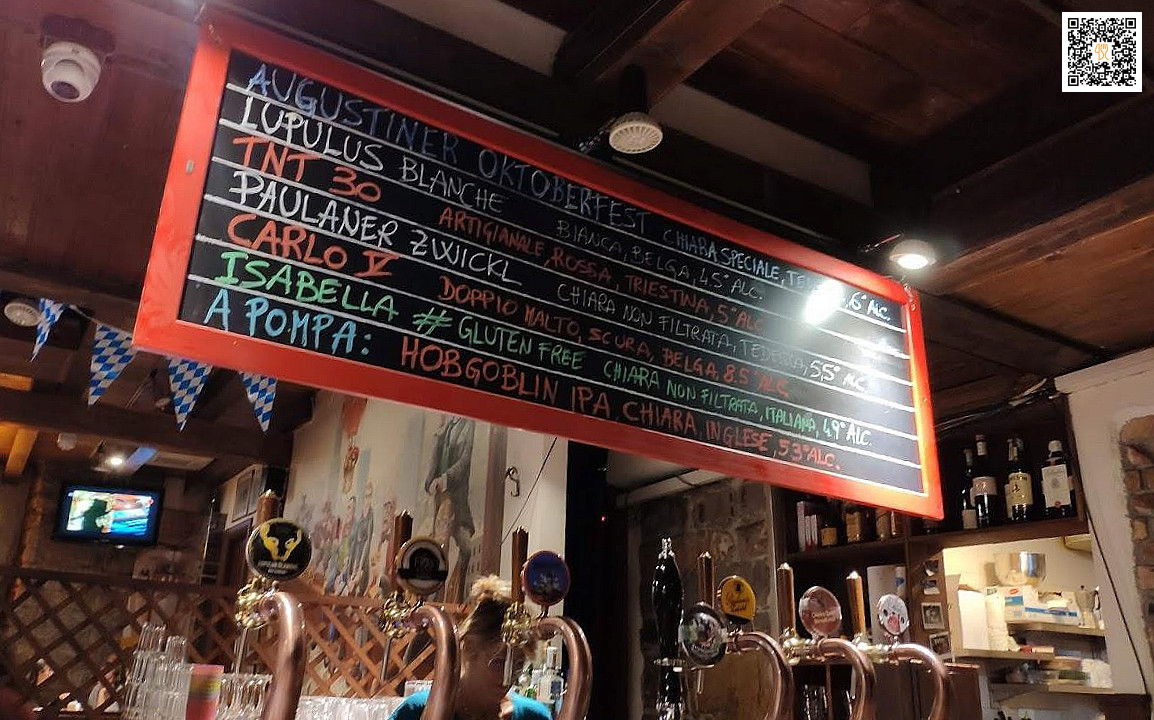 AUGUSTINER OKTOBERFEST CHIARA SPECIALE, 6° ALC.
LUPULUS BLANCHE BIANCA, BELGA, 4.5° ALC.
TNT 30 ARTIGIANALE, ROSSA, TRIESTINA, 5° ALC.
PAULANER ZWICKL CHIARA NON FILTRATA, TEDESCA, 5,5° ALC.
CARLO IV DOPPIO MALTO, SCURA, BELGA, 8.5° ALC.
ISABELLA # GLUTEN FREE CHIARA NON FILTRATA, ITALIANA, 4,9° ALC.
A POMPA: HOBGOBLIN IPA CHIARA, INGLESE, 5.3° ALC.